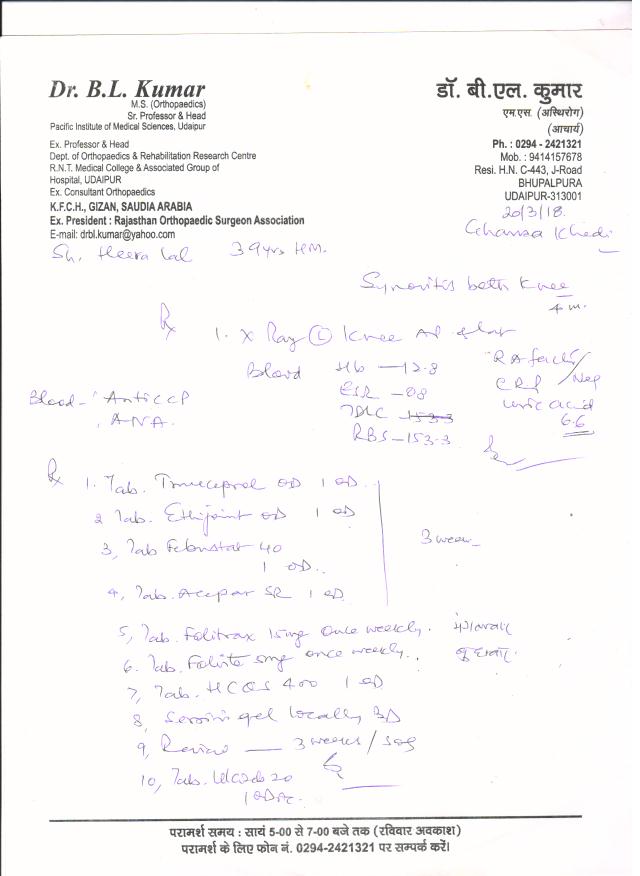 Dr. B.L. Kumar
M.S. (Orthopaedics)
Sr. Professor & Head
Pacific Institute of Medical Sciences, Udaipur
Ex. Professor & Head
Dept. of Orthopaedics & Rehabilitation Research Centre
R.N.T. Medical College & Associated Group of
Hospital, UDAIPUR
Ex. Consultant Orthopaedics
K.F.C.H., GIZAN, SAUDIA ARABIA
Ex. President : Rajasthan Orthopaedic Surgeon Association
E-mail: drbl.kumar@yahoo.com
डॉ. बी.एल. कुमार
एम.एस. (अस्थिरोग)
(आचार्य)
Ph. : 0294 - 2421321
Mob. : 9414157678
Resi. H.N. C-443, J-Road
BHUPALPURA
UDAIPUR-313001
20/3/18.
Sh. Heera Lal 39yrs HM.
Synovitis both Knee
4 m.
Rx 1. X Ray (L) Knee AP &
Blood Hb — 12.8
ESR - 08
TDLC
RBS - 153.3
RA factor
CRP / Neg
uric acid
6.6
Blood - Anti CCP
, ANA.
Rx 1. Tab. OD 1 OD.
2 Tab. Ethijoint OD 1 OD
3, Tab Febustat 40
1 OD..
4, Tab. SR 1 OD
3 week
5, Tab. Folitrax 15mg Once weekly. मंगलवार
6. Tab. Folite 5mg once weekly., बुधवार.
7, Tab. HCQS 400 1 OD
8, gel locally BD
9, Review — 3 weeks / SOS
10, Tab. 20
1 OD
परामर्श समय : सायं 5-00 से 7-00 बजे तक (रविवार अवकाश)
परामर्श के लिए फोन नं. 0294-2421321 पर सम्पर्क करें।